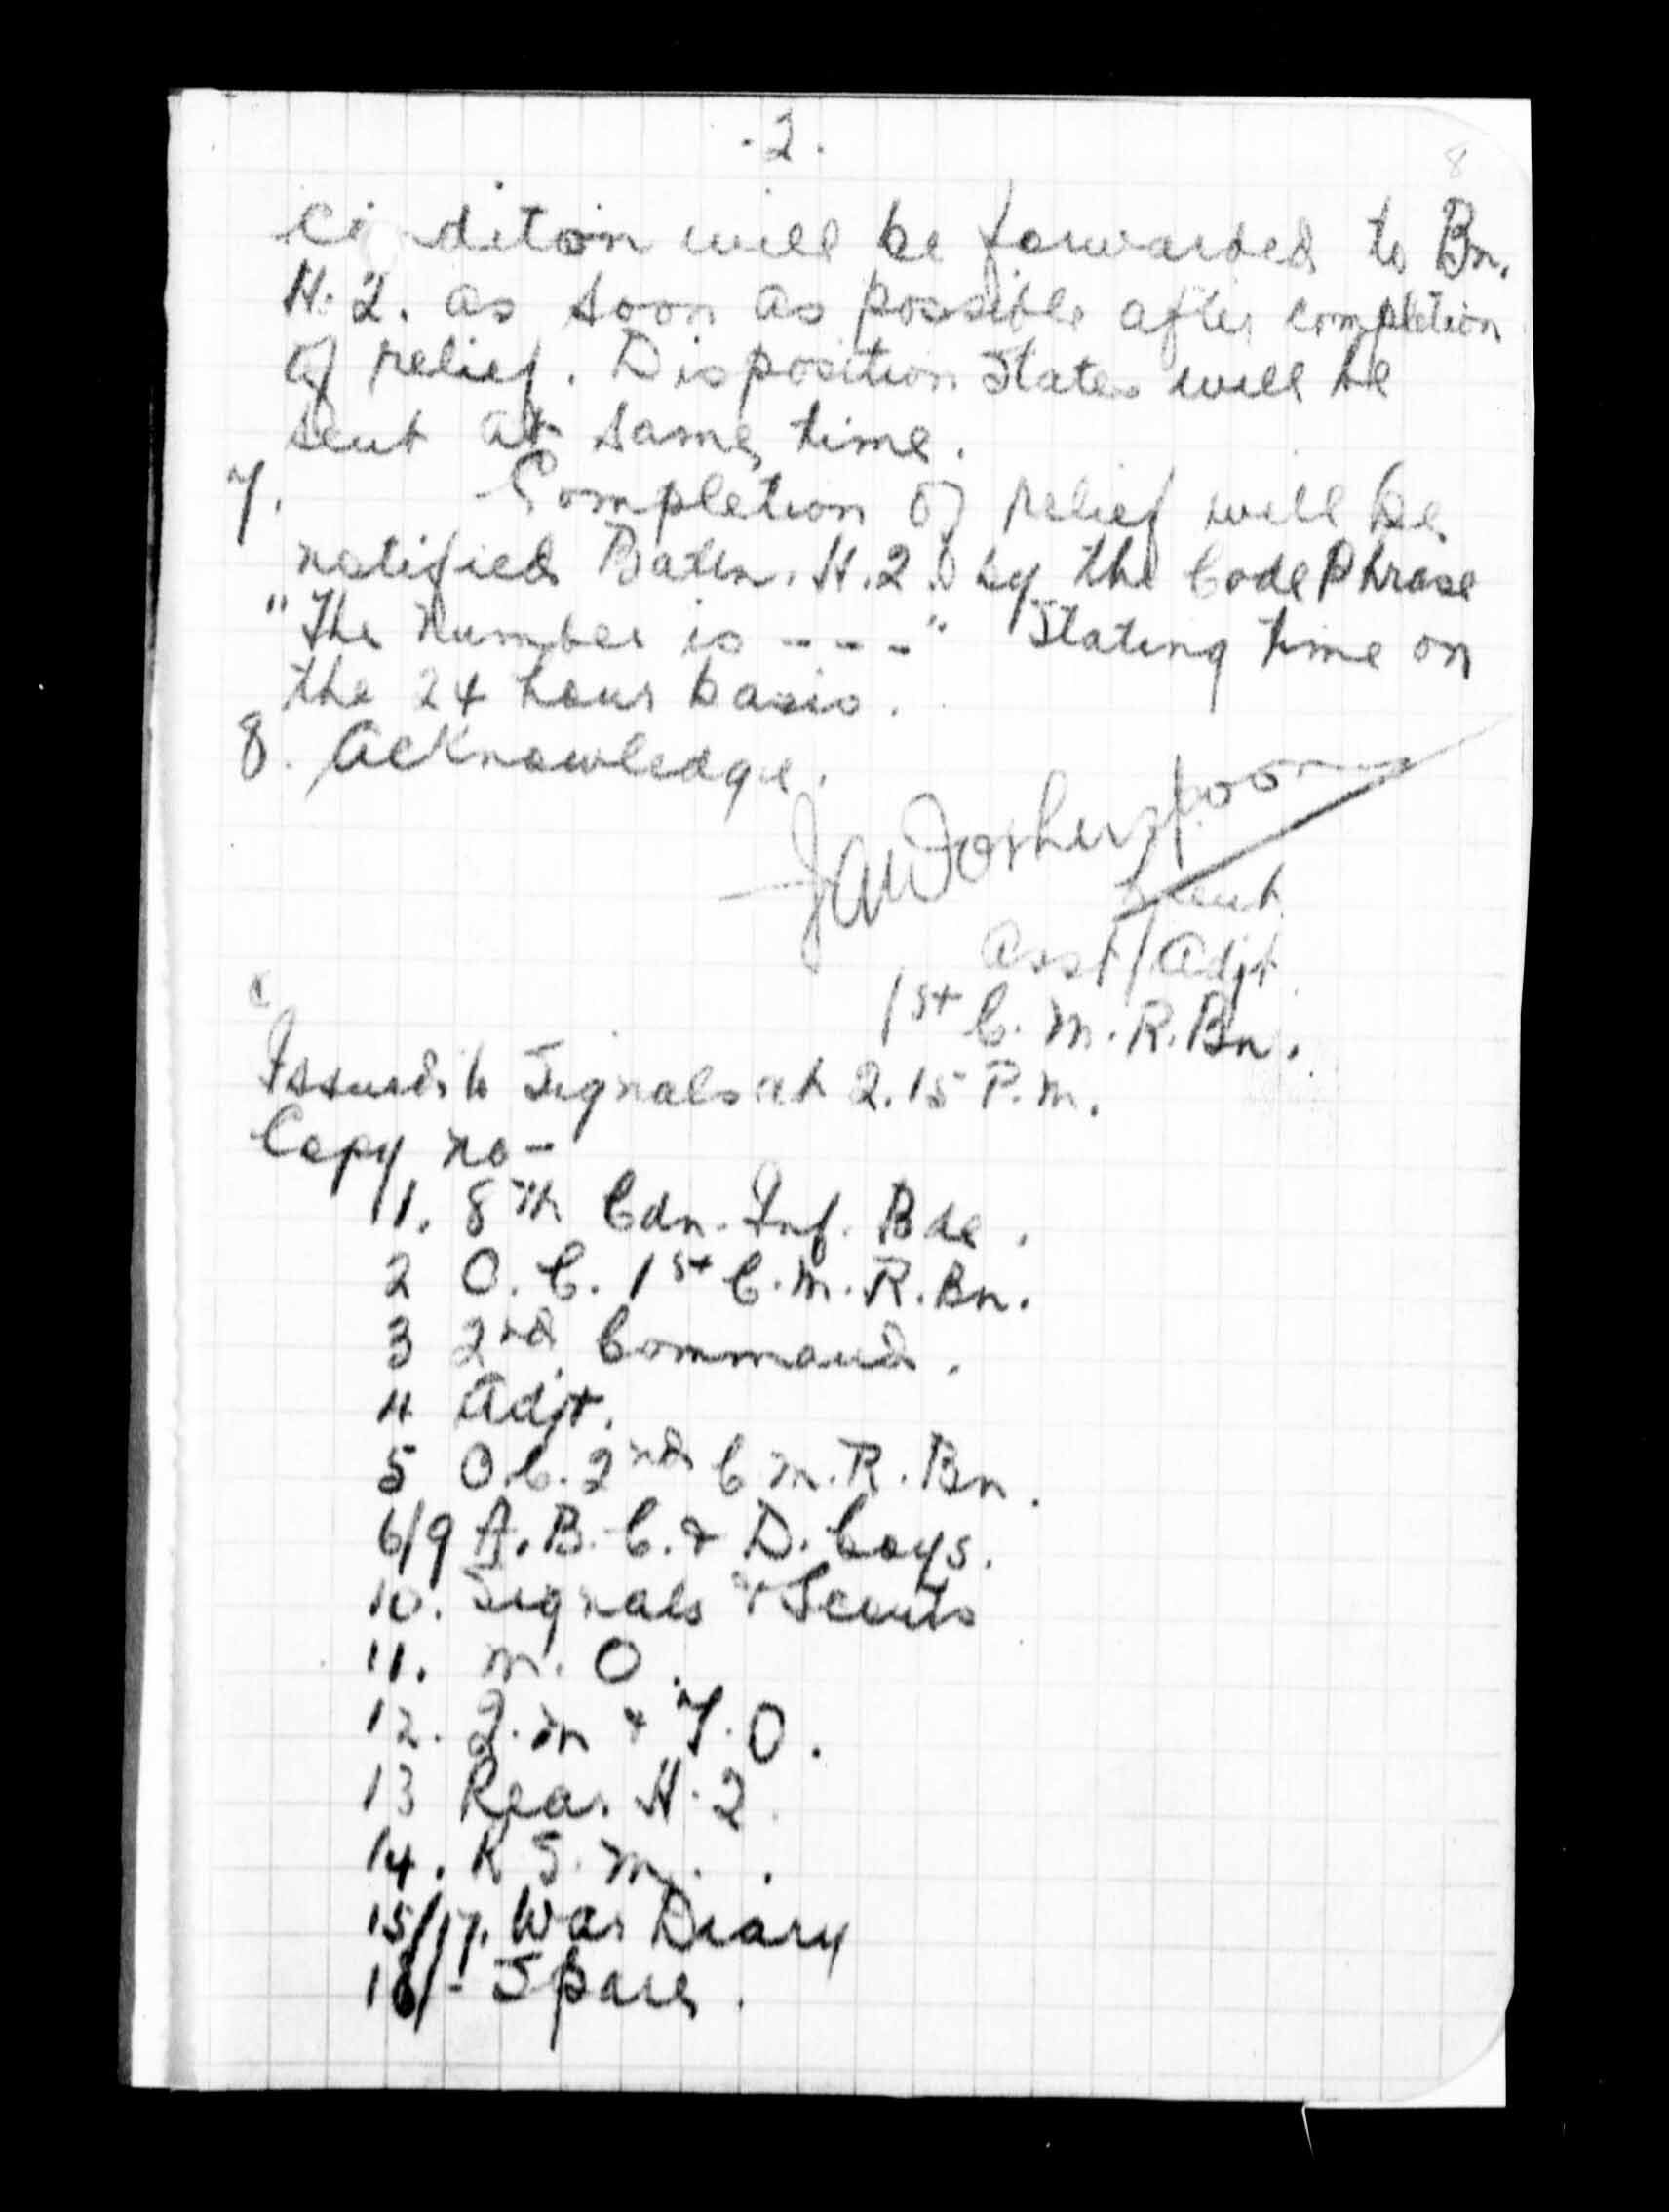 .2.
8
Condition will be forwarded to Bn.
H.Q. as soon as possible after completion
of relief. Disposition States will be
sent at same time.
7. Completion of relief will be
notified Battn. H.Q. by the Code Phrase
"The Number is - - -" Stating time on
the 24 hour basis.
8. Acknowledge.
Lieut
Asst/Adjt.
1st C.M.R.Bn.
Issued to Signals at 2.15 P.m.
Copy no -
1. 8th Cdn. Inf. Bde.
2 O.C. 1st C.M.R.Bn.
3 2nd Command.
4 Adjt.
5 O.C. 2nd C.M.R.Bn.
6/9 A.B.C. & D. Coys.
10. Signals & Scouts
11. M.O.
12. Q.M & T.O.
13 Rear H.Q.
14. R.S.M.
15/17. War Diary
18/- Spare.